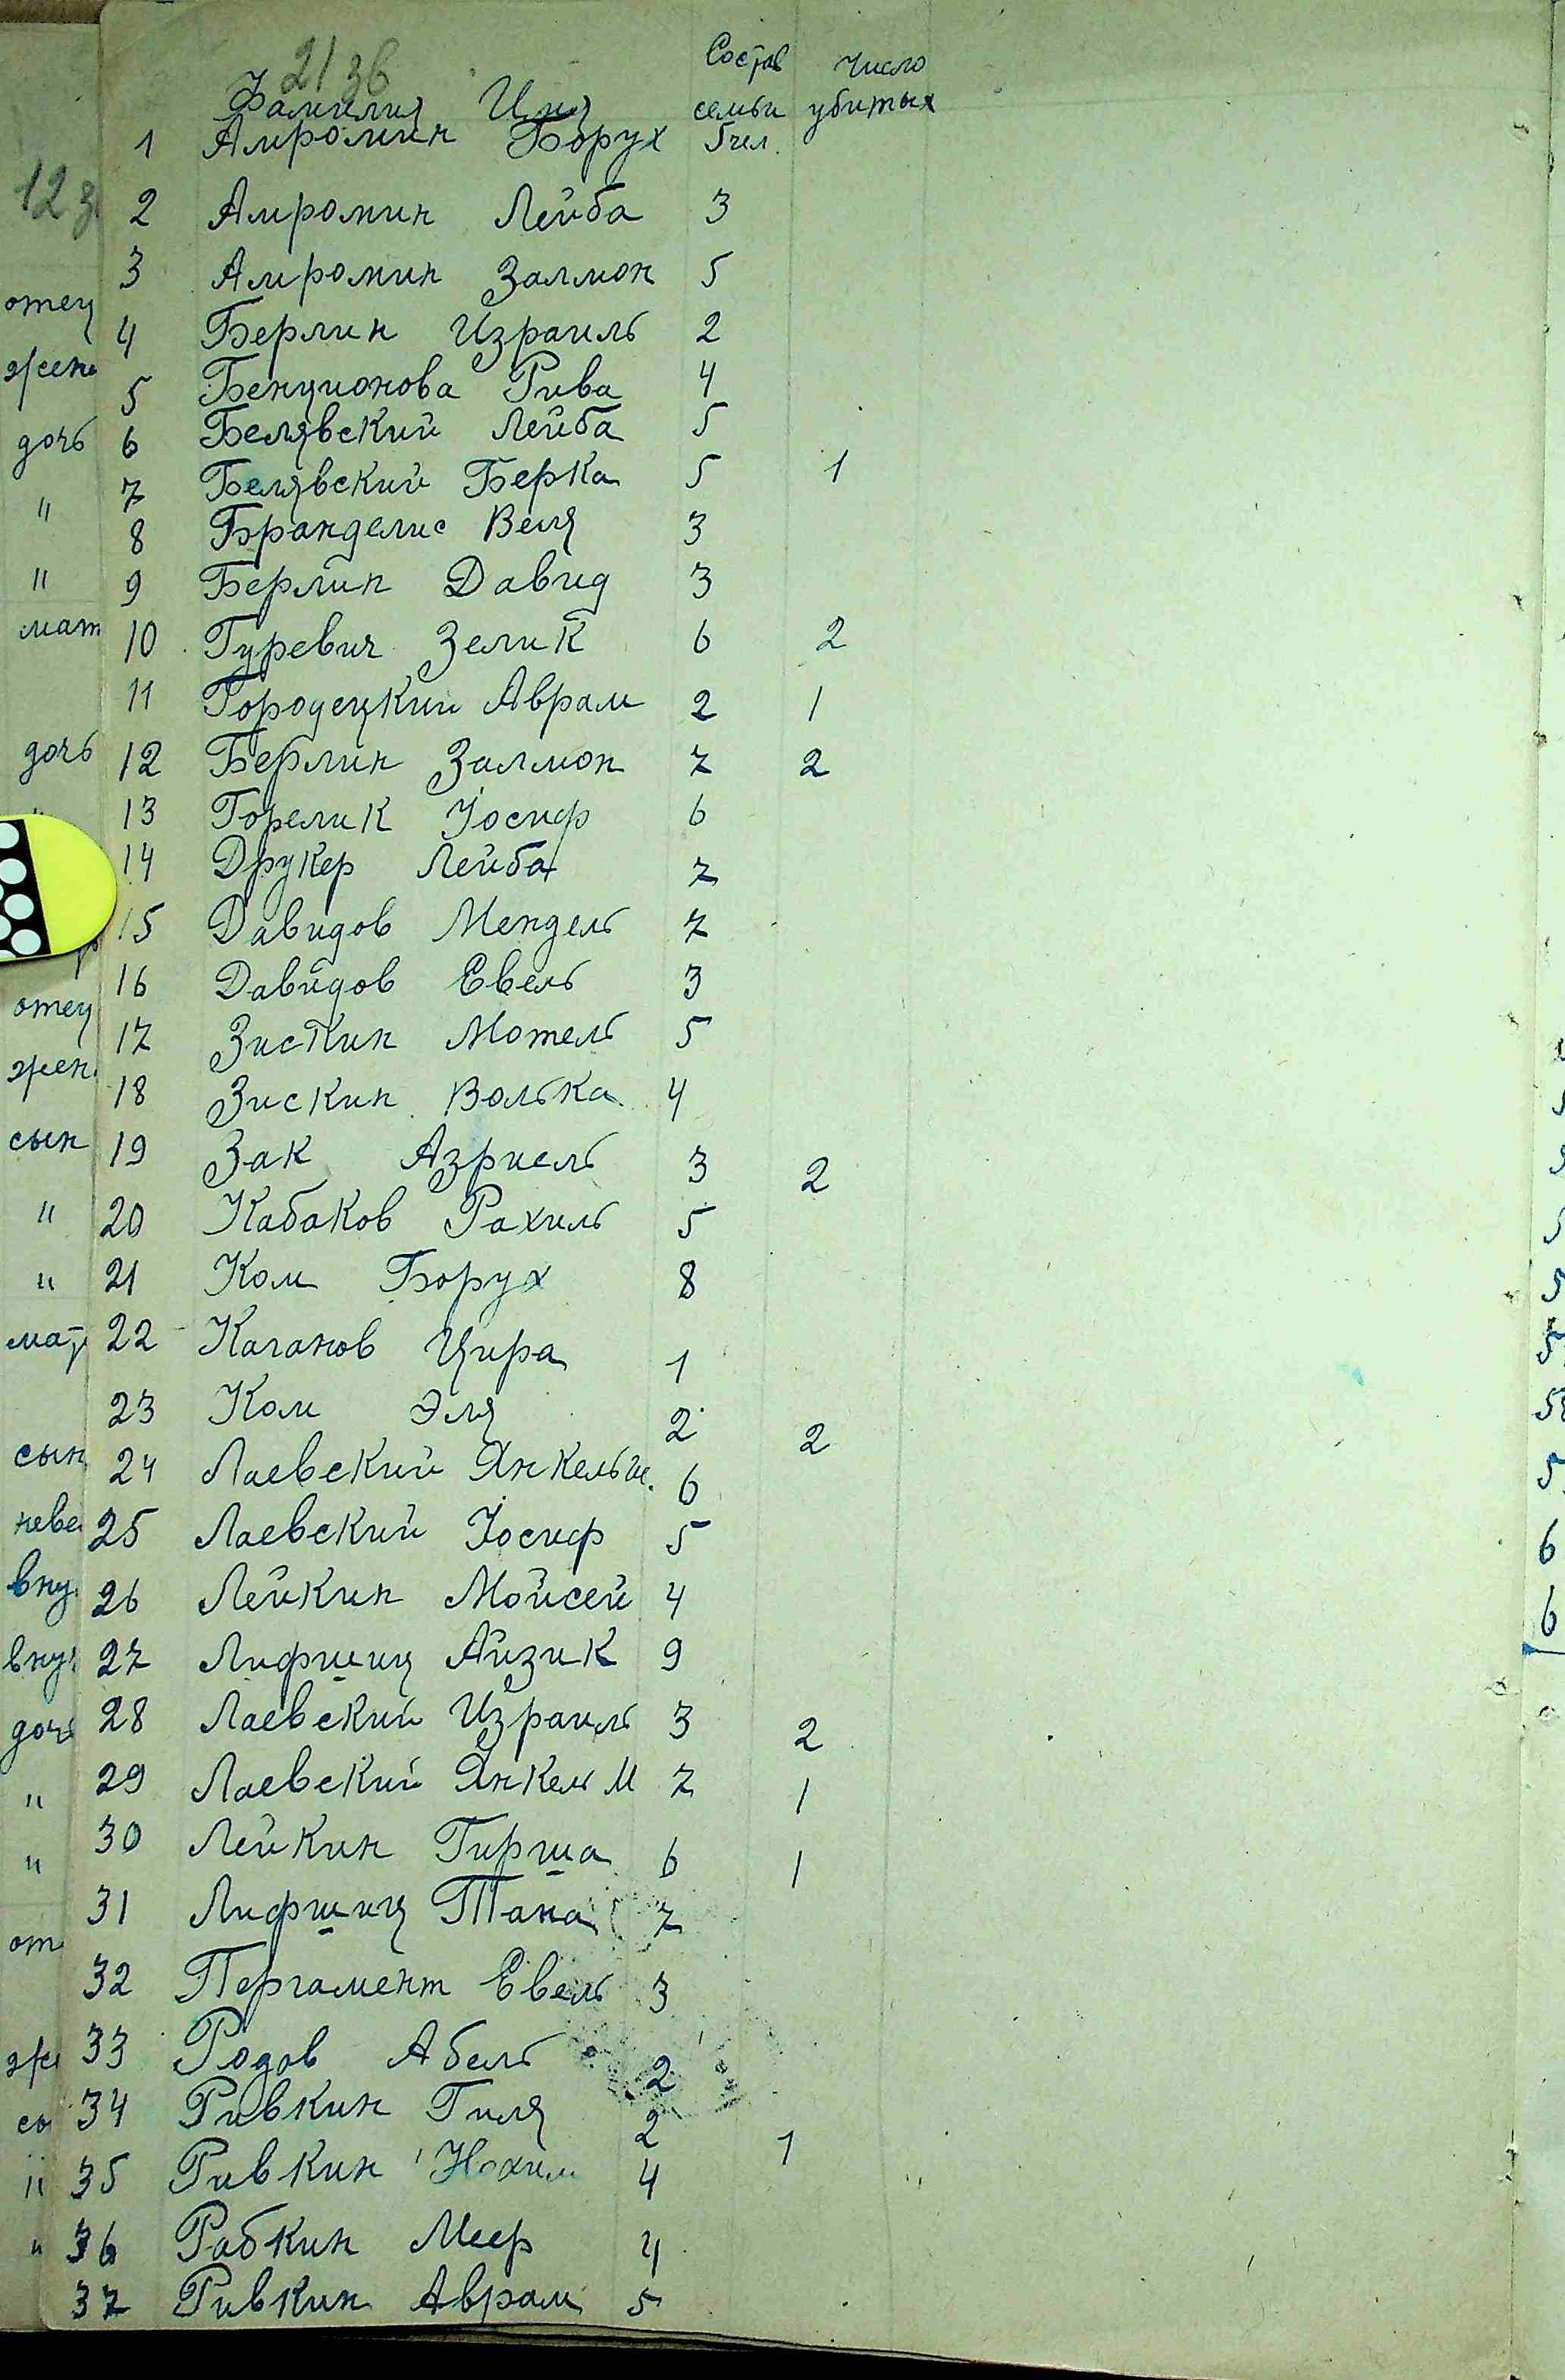 21 зв
Состав Число
Фамилия Имя семьи убитых
1 Амромин Борух 5 чел.
12 з
2 Амромин Лейба 3
3 Амромин Залмон 5
отец
4 Берлин Израиль 2
жен
5 Бенционова Рива 4
дочь 6 Белявский Лейба 5
7 Белявский Берка 5 1
"
8 Бранделис Веля 3
" 9 Берлин Давид 3
мат 10 Гуревич Зелик 6 2
11 Городецкий Аврам 2 1
дочь 12 Берлин Залмон 7 2
13 Горелик Иосиф 6
14 Друкер Лейба 7
15 Давидов Мендель 7
16 Давидов Евель 3
отец
17 Зискин Мотель 5
жен
18 Зискин Волька 4
сын 19 Зак Азриель 3 2
" 20 Кабаков Рахиль 5
" 21 Ком Борух 8
мат 22 Каганов Цира 1
23 Ком Эля 2 2
сын 24 Лаевский Янкель 6
неве 25 Лаевский Иосиф 5
вну 26 Лейкин Мойсей 4
вну 27 Лифшиц Айзик 9
доч 28 Лаевский Израиль 3 2
" 29 Лаевский Янкель М 7 1
" 30 Лейкин Гирша 6 1
31 Лифшиц Тана 7
от
32 Пергамент Евель 3
же 33 Родов Абель 2
сы 34 Ривкин Гиля 2 1
" 35 Ривкин Нохим 4
" 36 Рабкин Меер 4
37 Ривкин Аврам 5